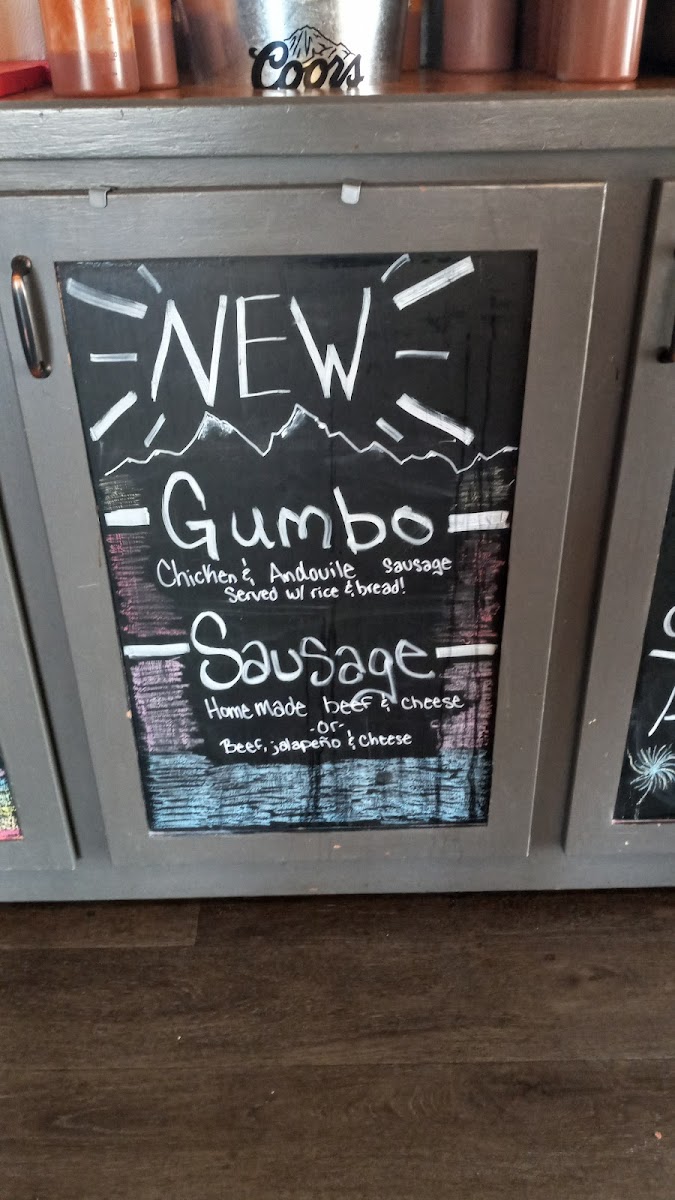 Coors
NEW
Gumbo
Chicken & Andouile sausage
Served w/ rice & bread!
Sausage
Homemade beef & cheese
-or-
Beef, jalapeño & Cheese